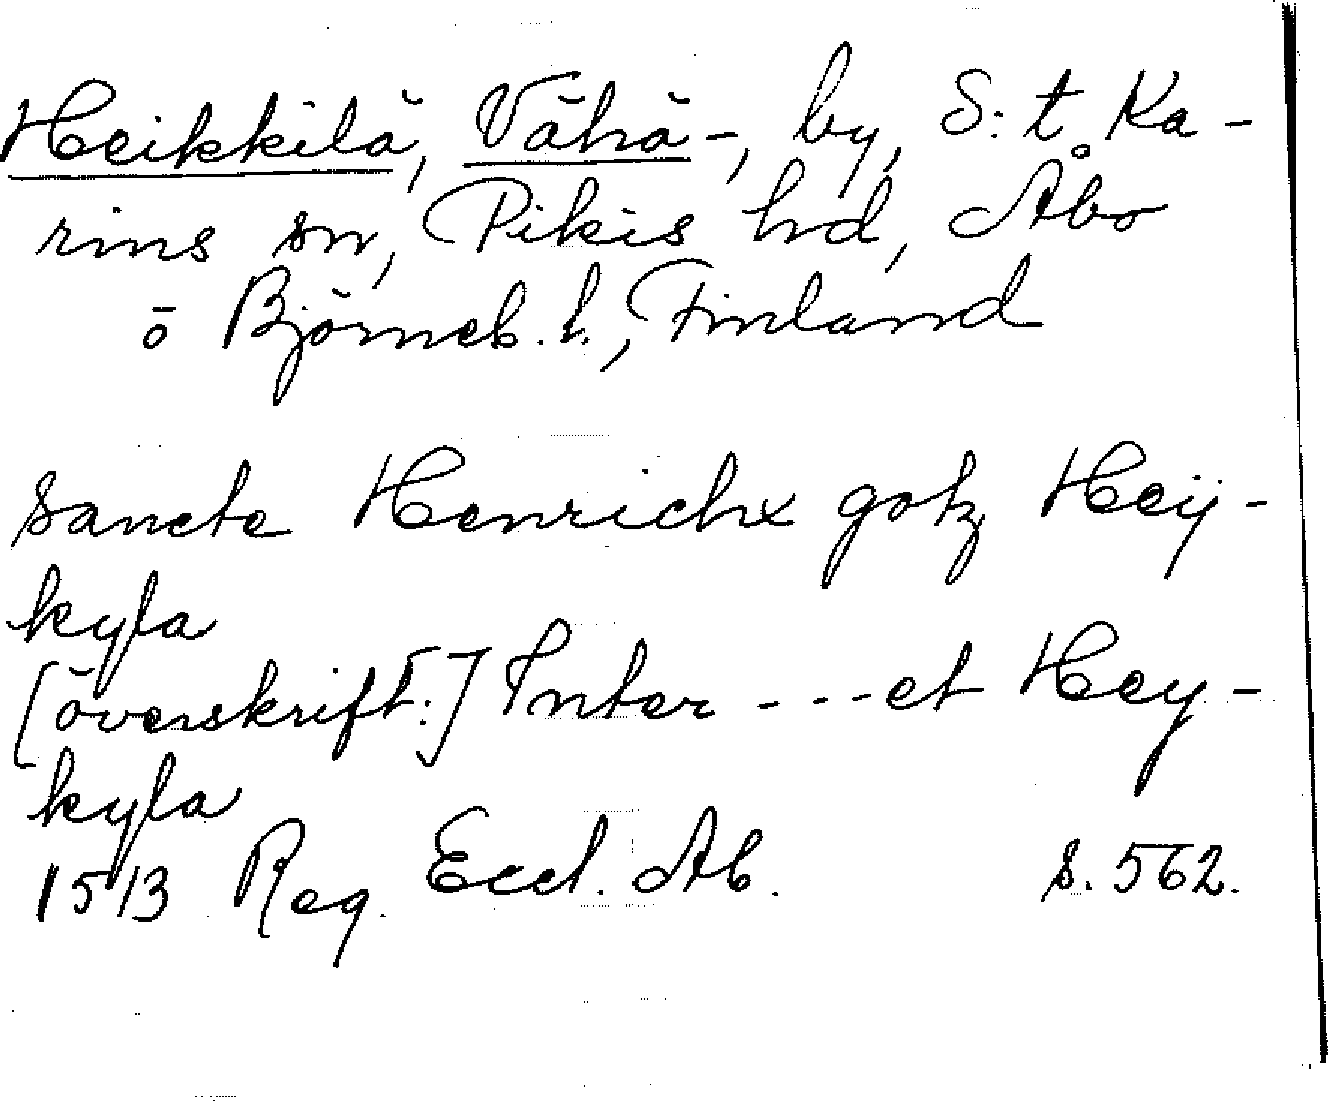 Heikkilä, Vähä-, by, S:t Ka-
rins sn, Pikis hd, Åbo
o Björneb. l., Finland
sancte Henrichx gotz Heÿ-
kyla
[överskrift:] Inter ---et Hey-
kyla
1513 Reg. Eccl. Ab. s. 562.